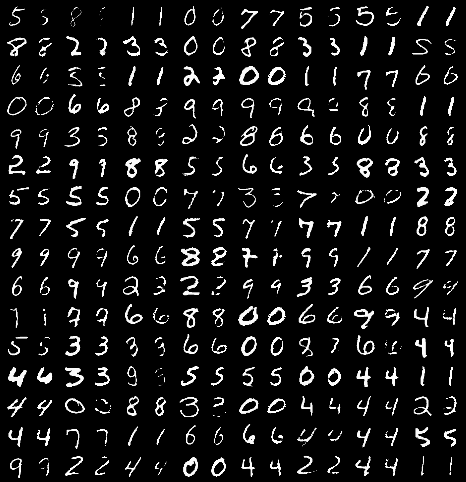 5 5 8 8 1 1 0 0 7 7 5 5 5 5 1 1
8 8 2 2 3 3 0 0 8 8 3 3 1 1 5 5
6 6 5 5 1 1 2 2 0 0 1 1 7 7 6 6
0 0 6 6 8 8 9 9 9 9 9 8 8 1 1
9 9 3 5 8 8 2 2 8 8 6 6 0 0 8 8
2 2 9 9 8 8 5 5 6 6 3 3 8 8 3 3
5 5 5 5 0 0 7 7 3 3 7 7 0 0 2 2
7 7 5 5 1 1 5 5 7 7 7 7 1 1 8 8
9 9 9 9 6 6 8 8 7 7 9 9 1 1 7 7
6 6 9 9 2 3 2 2 9 9 3 3 6 6 9 9
1 1 7 7 6 6 8 8 0 0 6 6 9 9 4 4
5 5 3 3 3 3 6 6 0 0 8 7 6 4 4
4 6 3 3 9 5 5 5 5 0 0 4 4 1 1
4 4 0 0 8 8 3 2 0 0 4 4 4 4 2 2
4 4 7 7 1 1 6 6 6 6 4 4 4 4 5 5
9 9 2 2 4 4 0 0 4 4 2 2 4 4 1 1